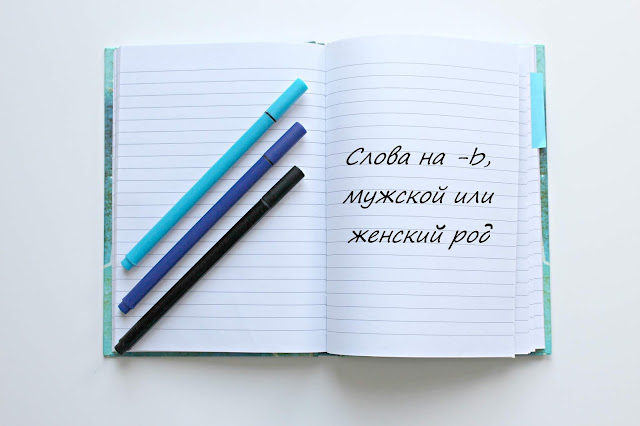 Слова на -ь,
мужской или
женский род